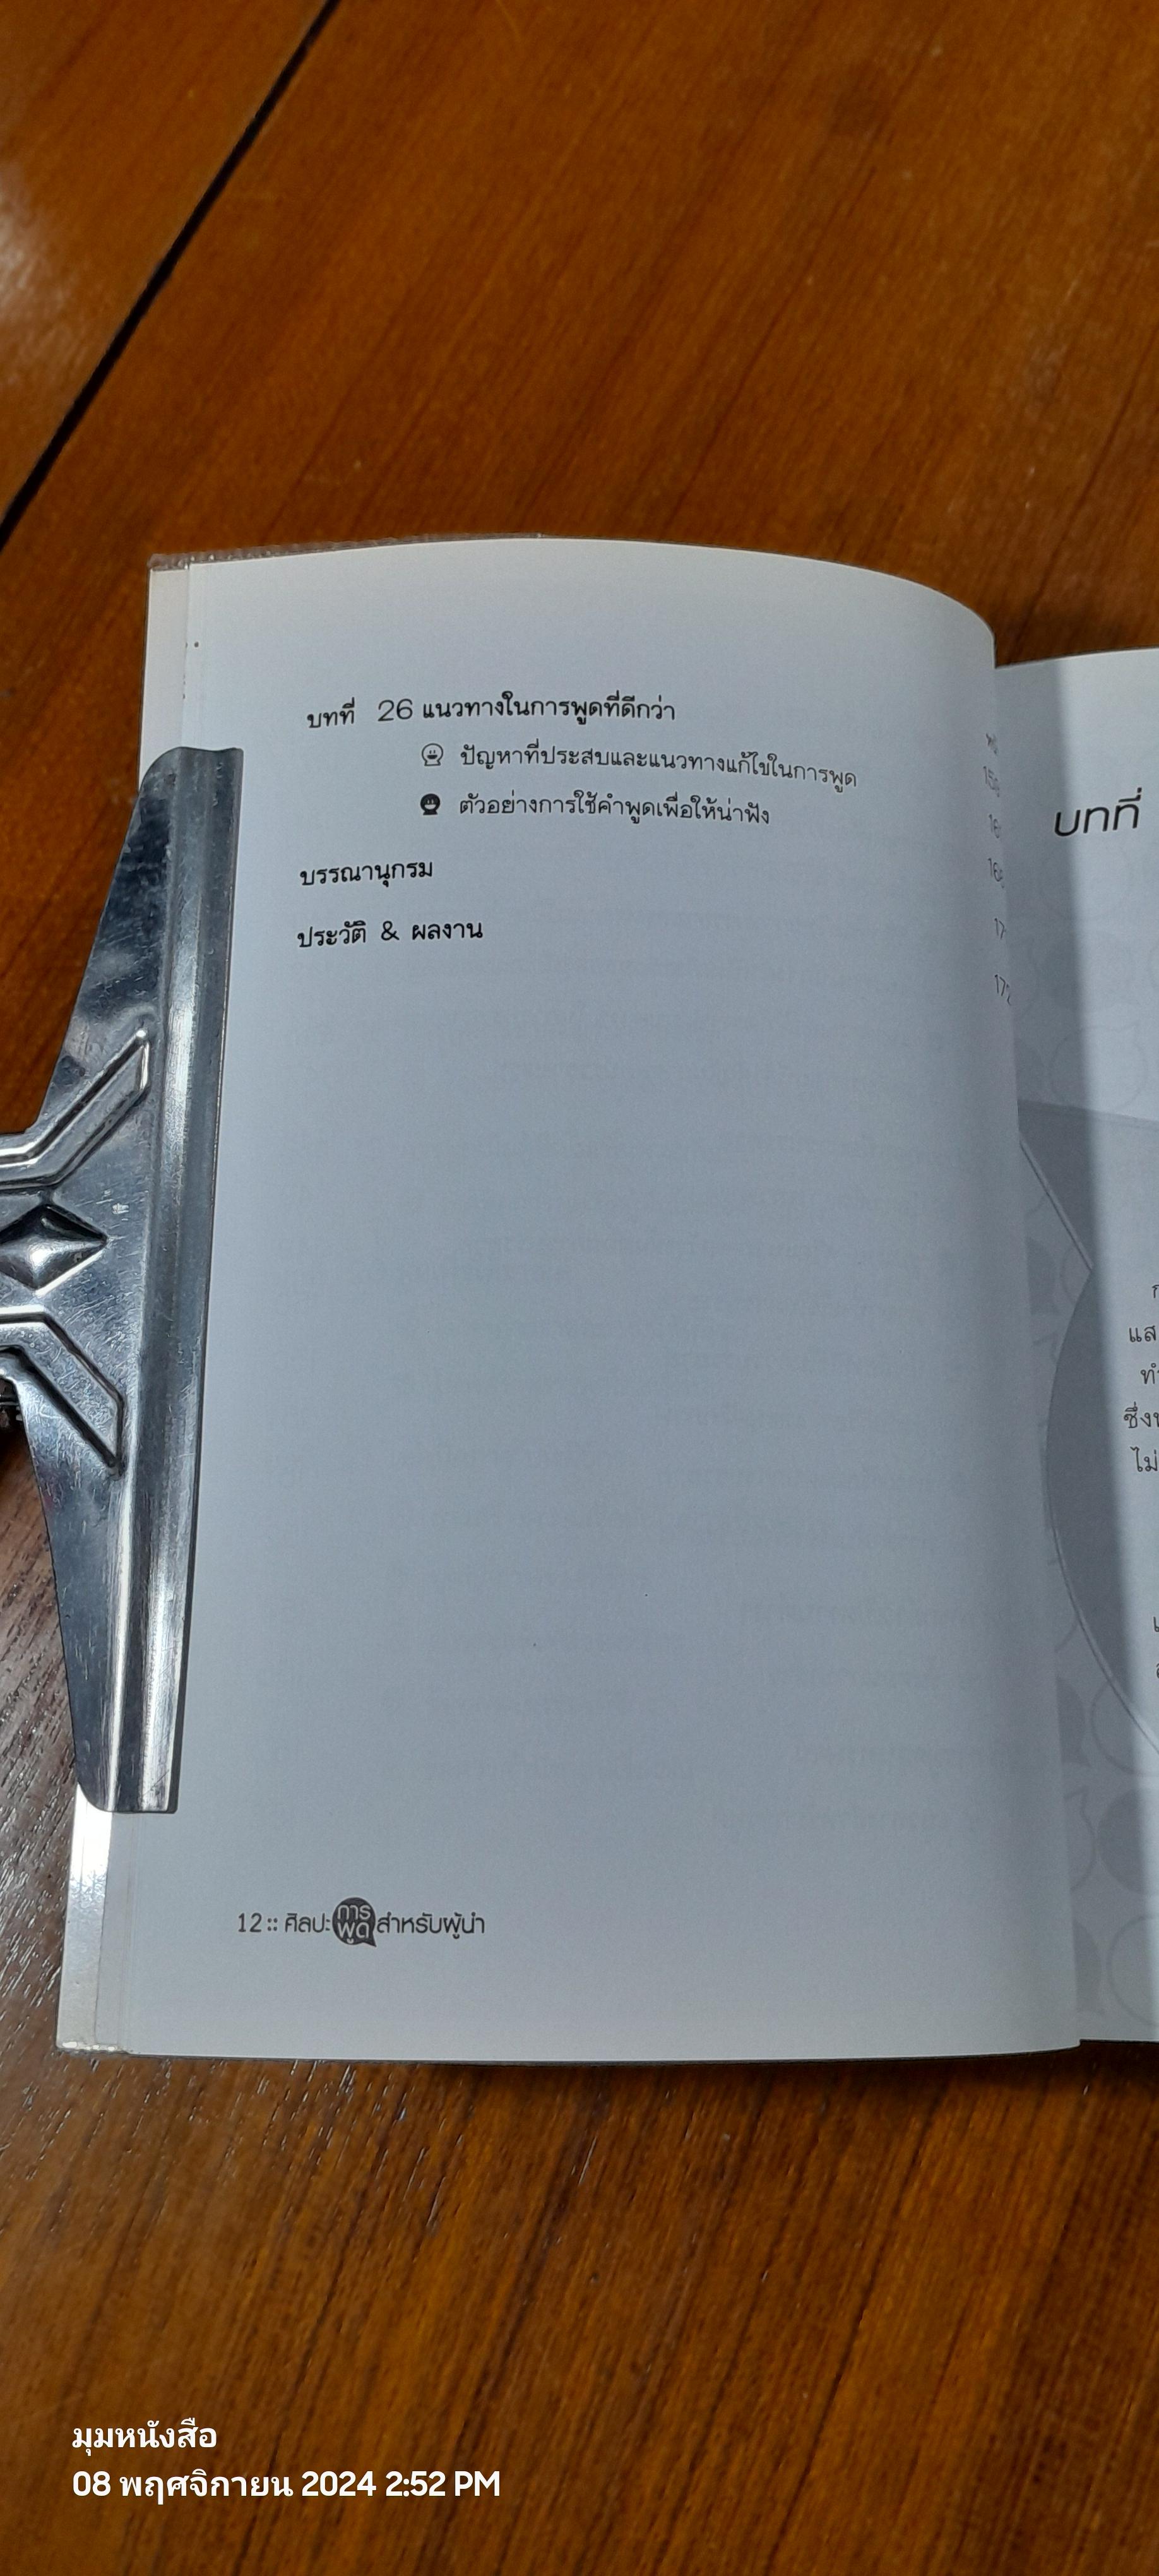 บทที่ 26 แนวทางในการพูดที่ดีกว่า
ปัญหาที่ประสบและแนวทางแก้ไขในการพูด
ตัวอย่างการใช้คำพูดเพื่อให้น่าฟัง
บรรณานุกรม
ประวัติ & ผลงาน
172
12 :: ศิลปะการพูดสำหรับผู้นำ
บทที่
แส
ไม่
มุมหนังสือ
08 พฤศจิกายน 2024 2:52 PM